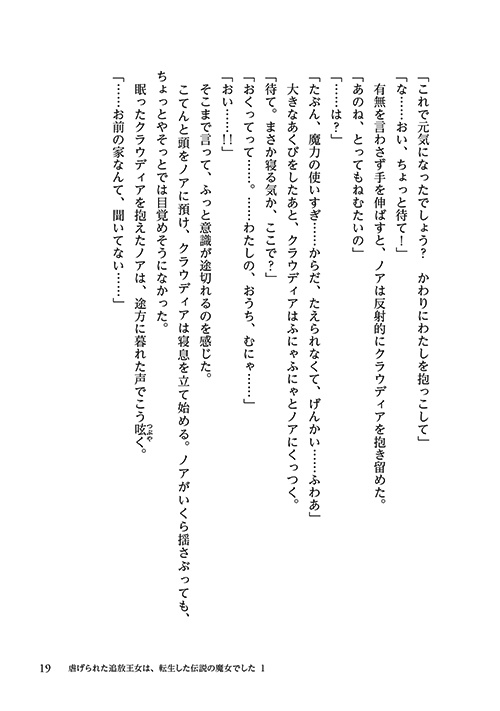 「これで元気になったでしょう？　かわりにわたしを抱っこして」
「な……おい、ちょっと待て！」
　有無を言わさず手を伸ばすと、ノアは反射的にクラウディアを抱き留めた。
「あのね、とってもねむたいの」
「……は？」
「たぶん、魔力の使いすぎ……からだ、たえられなくて、げんかい……ふわあ」
　大きなあくびをしたあと、クラウディアはふにゃふにゃとノアにくっつく。
「待て。まさか寝る気か、ここで？」
「おくってって……。……わたしの、おうち、むにゃ……」
「おい……!!」
　そこまで言って、ふっと意識が途切れるのを感じた。
　こてんと頭をノアに預け、クラウディアは寝息を立て始める。ノアがいくら揺さぶっても、
ちょっとやそっとでは目覚めそうになかった。
　眠ったクラウディアを抱えたノアは、途方に暮れた声でこう呟つぶやく。
「……お前の家なんて、聞いてない……」
19　虐げられた追放王女は、転生した伝説の魔女でした 1